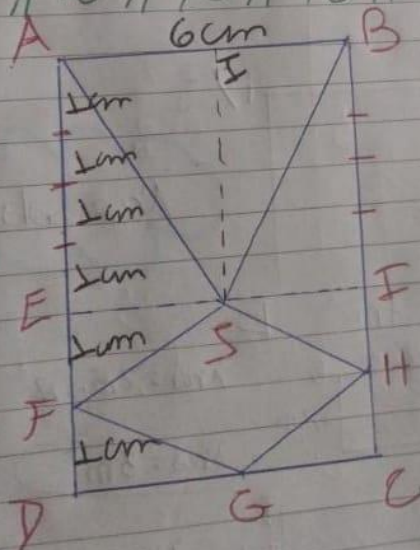 A 6cm B
I
1cm
1cm
1cm
1cm
E I
S
1cm
H
F
1cm
D G C